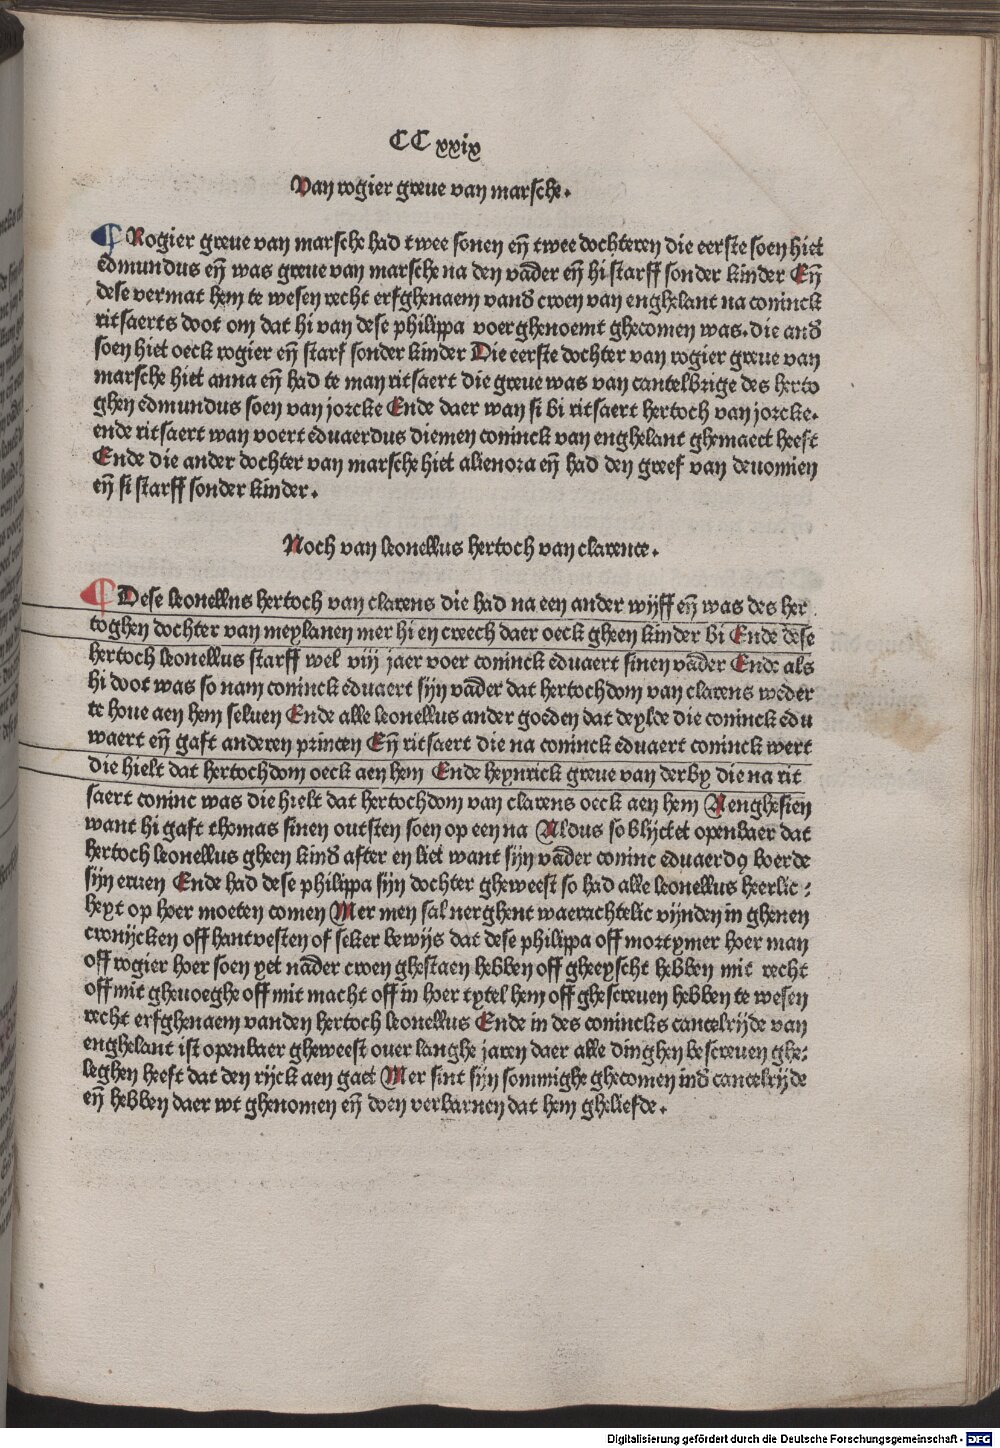 CC xxix
Van rogier greue van marsche.
¶ Rogier greue van marsche had twee sonen en̄ twee dochteren die eerste soen hiet
edmundus en̄ was greue van marsche na den vād̄er en̄ hi starff sonder kinder En̄
dese vermat hem te wesen recht erfghenaem vand̄ croen van enghelant na coninck
ritsaerts doot om dat hi van dese philippa voerghenoemt ghecomen was. die and̄
soen hiet oeck rogier en̄ starf sonder kinder Die eerste dochter van rogier greue van
marsche hiet anna en̄ had te man ritsaert die greue was van cantelbrige des herto
ghen edmundus soen van jorcke Ende daer wan si bi ritsaert hertoch van jorcke.
ende ritsaert wan voert eduaerdus diemen coninck van enghelant ghemaect heeft
Ende die ander dochter van marsche hiet alienora en̄ had den greef van deuomien
en̄ si starff sonder kinder.
Noch van leonellus hertoch van clarence.
¶ Dese leonellns hertoch van clarens die had na een ander wijff en̄ was des her
toghen dochter van meylanen mer hi en creech daer oeck gheen kinder bi Ende dese
hertoch leonellus starff wel viij jaer voer coninck eduaert sinen vād̄er Ende als
hi doot was so nam coninck eduaert sijn vād̄er dat hertochdom van clarens weder
te houe aen hem seluen Ende alle leonellus ander goeden dat deylde die coninck edu
waert en̄ gaft anderen princen En̄ ritsaert die na coninck eduaert coninck wert
die hielt dat hertochdom oeck aen hem Ende heynrick greue van derby die na rit
saert coninc was die hielt dat hertochdom van clarens oeck aen hem Aenghesien
want hi gaft thomas sinen outsten soen op een na Aldus so blijctet openbaer dat
hertoch leonellus gheen kind̄ after en liet want sijn vād̄er coninc eduaerdꝰ boerde
sijn eruen Ende had dese philippa sijn dochter gheweest so had alle leonellus heerlic:
heyt op hoer moeten comen Mer men sal nerghent waerachtelic vijnden in ghenen
cronijcken off hantvesten of seker bewijs dat dese philippa off mortymer hoer man
off rogier hoer soen yet nād̄er croen ghestaen hebben off gheeyscht hebben mit recht
off mit gheuoeghe off mit macht off in hoer tytel hem off ghescreuen hebben te wesen
recht erfghenaem vanden hertoch leonellus Ende in des conincks cancelrijde van
enghelant ist openbaer gheweest ouer langhe jaren daer alle dinghen bescreuen ghe:
leghen heeft dat den rijck aen gaet Mer sint sijn sommighe ghecomen ind̄ cancelrijde
en̄ hebben daer wt ghenomen en̄ doen verbarnen dat hem gheliefde.
Digitalisierung gefördert durch die Deutsche Forschungsgemeinschaft - DFG